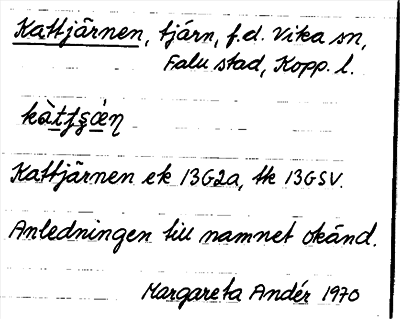 Kattjärnen, tjärn, f.d. Vika sn,
Falu stad, Kopp. l.
Kattjärnen ek 13G2a, tk 13GSV.
Anledningen till namnet okänd.
Margareta Andér 1970